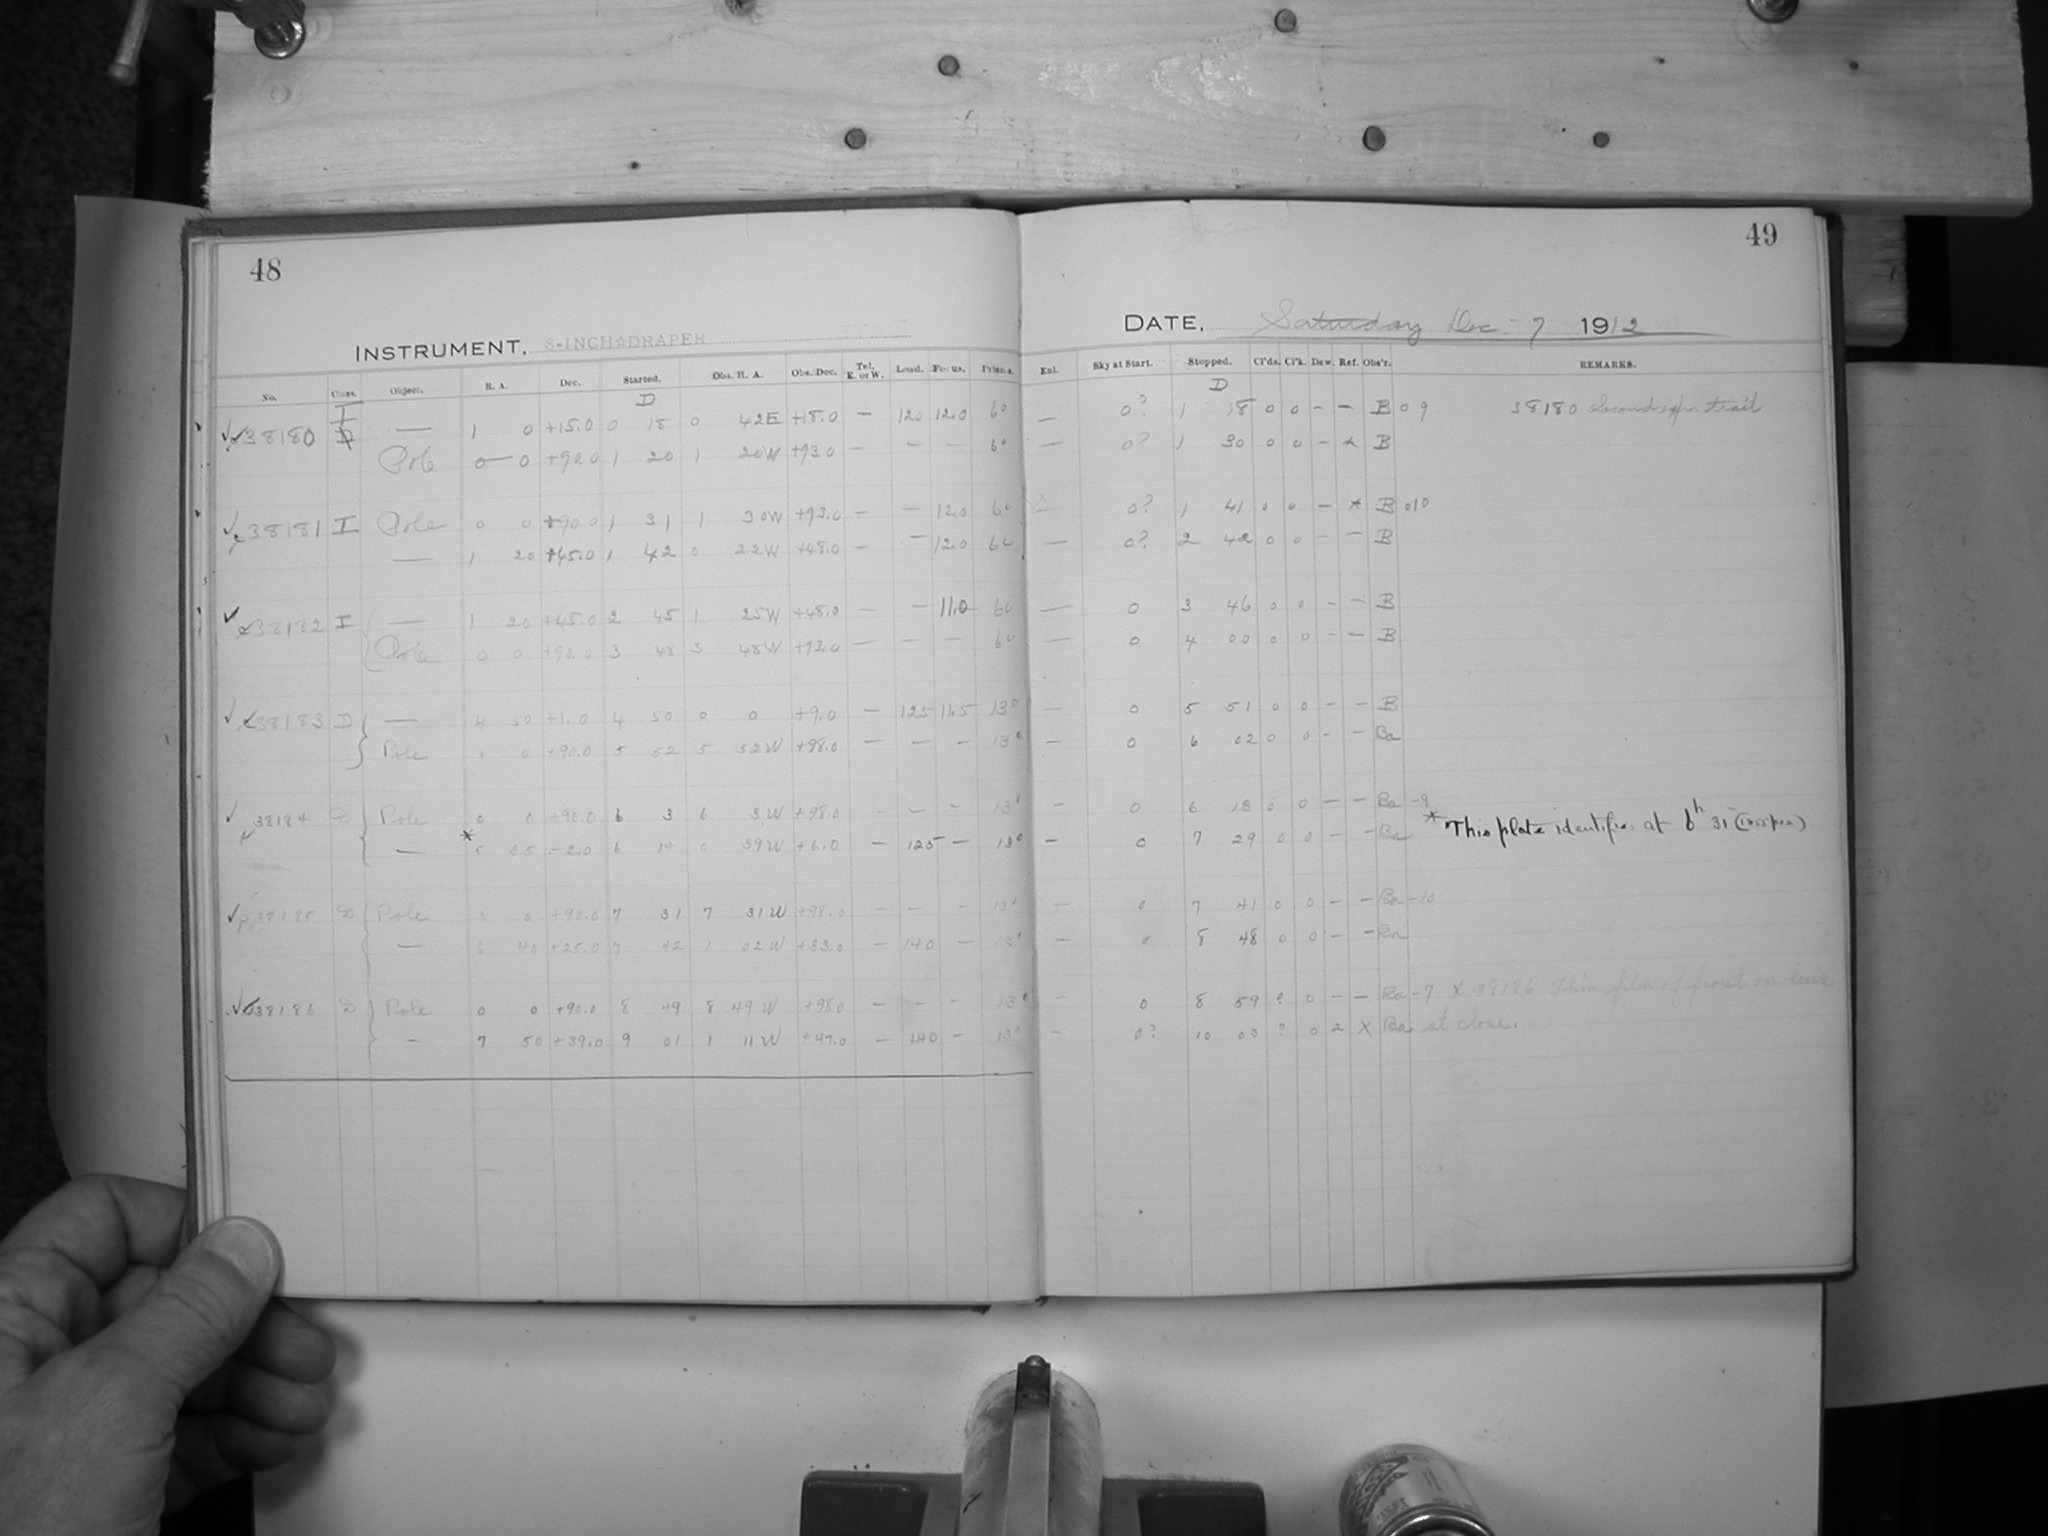 48
INSTRUMENT, 8-INCH DRAPER
No. Class. Object. R. A. Dec. Started. Obs. H. A. Obs. Dec. Tel. E. or W. Load. Focus. Prisms.
D
38180 I — 1 0 +15.0 0 18 0 42E +18.0 — 120 12.0 60
Pole 0 — 0 +92.0 1 20 1 20W +93.0 — — — 60
38181 I Pole 0 0 +90.0 1 31 1 30W +93.0 — — 12.0 60
— 1 20 +45.0 1 42 0 22W +48.0 — — 12.0 60
38182 I — 1 20 +45.0 2 45 1 25W +48.0 — — 11.0 60
Pole 0 0 +90.0 3 48 3 48W +93.0 — — — 60
38183 D — 4 50 +1.0 4 50 0 0 +9.0 — 125 11.5 13°
Pole 0 0 +90.0 5 52 5 52W +98.0 — — — 13°
38184 D Pole 0 0 +90.0 6 3 6 3W +98.0 — — — 13°
— * 5 35 -2.0 6 14 0 39W +6.0 — 125 — 13°
38185 D Pole 0 0 +90.0 7 31 7 31W +98.0 — — — 13°
— 6 40 +25.0 7 42 1 02W +33.0 — 140 — 13°
38186 D Pole 0 0 +90.0 8 49 8 49W +98.0 — — — 13°
— 7 50 +39.0 9 01 1 11W +47.0 — 140 — 13°
49
DATE, Saturday Dec. 7 1912
Enl. Sky at Start. Stopped. Cl'ds. Cl'k. Dew. Ref. Obs'r. REMARKS.
D
— 0? 1 18 0 0 — — B 09 38180 Second exp. trail
— 0? 1 30 0 0 — * B
0? 1 41 0 0 — * B 010
— 0? 2 42 0 0 — — B
— 0 3 46 0 0 — — B
— 0 4 00 0 0 — — B
— 0 5 51 0 0 — — B
— 0 6 02 0 0 — — Ba
— 0 6 13 0 0 — — Ba -9
— 0 7 29 0 0 — — Ba * This plate identifies at 6h 31
— 0 7 41 0 0 — — Ba -10
— 0 8 48 0 0 — — Ba
— 0 8 59 ? 0 — — Ba -7 X 38186 Thin film of frost on lens
— 0? 10 03 ? 0 2 X Ba at close.